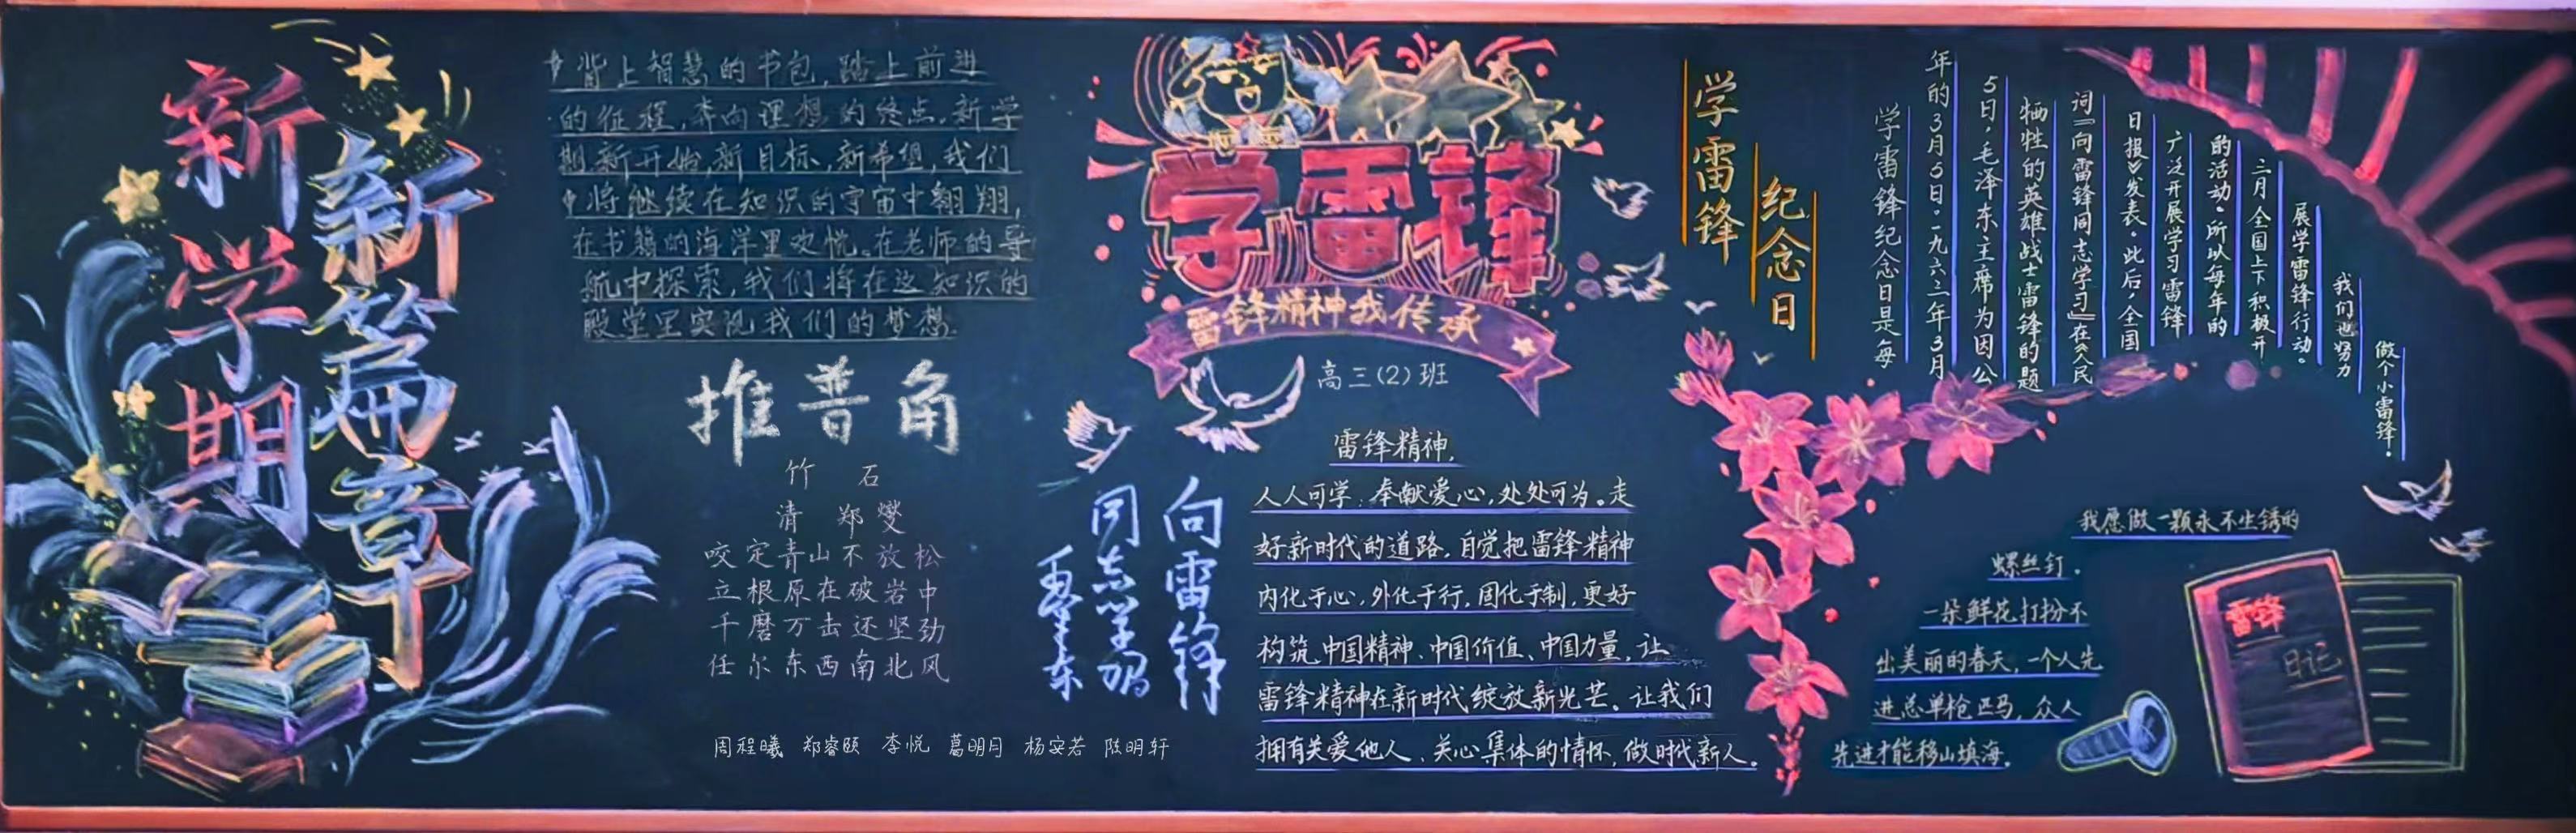 新学期
新篇章
背上智慧的书包,踏上前进
的征程,奔向理想的终点,新学
期,新开始,新目标,新希望,我们
将继续在知识的宇宙中翱翔,
在书籍的海洋里欢悦。在老师的导
航中探索,我们将在这知识的
殿堂里实现我们的梦想.
推普角
竹 石
清 郑燮
咬定青山不放松
立根原在破岩中
千磨万击还坚劲
任尔东西南北风
周程曦 郑睿颐 李悦 葛明月 杨安若 陈明轩
学雷锋
雷锋精神我传承
高三(2)班
向雷锋
同志学习
毛泽东
雷锋精神,
人人可学;奉献爱心,处处可为。走
好新时代的道路,自觉把雷锋精神
内化于心,外化于行,固化于制,更好
构筑中国精神、中国价值、中国力量,让
雷锋精神在新时代绽放新光芒。让我们
拥有关爱他人、关心集体的情怀,做时代新人。
学雷锋
纪念日
学雷锋纪念日是每
年的3月5日。一九六三年3月
5日,毛泽东主席为因公
牺牲的英雄战士雷锋的题
词『向雷锋同志学习』在《人民
日报》发表。此后,全国
广泛开展学习雷锋
的活动。所以每年的
三月全国上下积极开
展学雷锋行动。
我们也努力
做个小雷锋。
我愿做一颗永不生锈的
螺丝钉。
一朵鲜花打扮不
出美丽的春天,一个人先
进总单枪匹马,众人
先进才能移山填海。
雷锋
日记